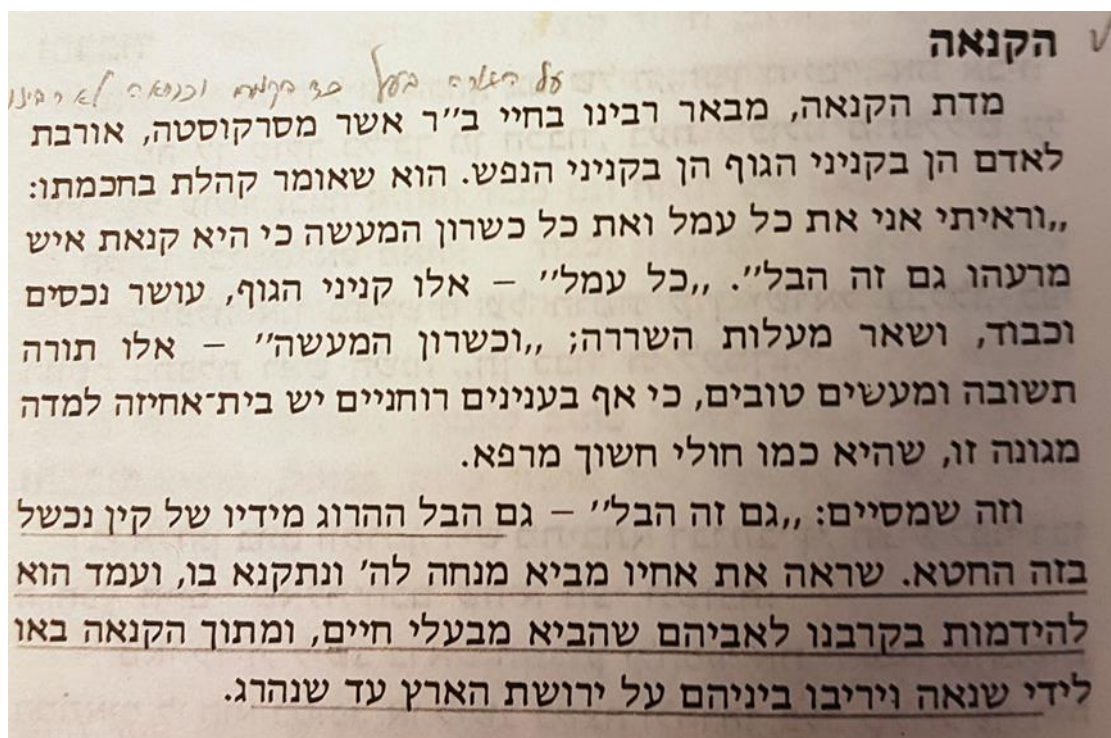 הקנאה
על
מדת הקנאה, מבאר רבינו בחיי ב״ר אשר מסרקוסטה, אורבת
לאדם הן בקניני הגוף הן בקניני הנפש. הוא שאומר קהלת בחכמתו:
,,וראיתי אני את כל עמל ואת כל כשרון המעשה כי היא קנאת איש
מרעהו גם זה הבל״. ,,כל עמל״ – אלו קניני הגוף, עושר נכסים
וכבוד, ושאר מעלות השררה; ,,וכשרון המעשה״ – אלו תורה
תשובה ומעשים טובים, כי אף בענינים רוחניים יש בית־אחיזה למדה
מגונה זו, שהיא כמו חולי חשוך מרפא.
וזה שמסיים: ,,גם זה הבל״ – גם הבל ההרוג מידיו של קין נכשל
בזה החטא. שראה את אחיו מביא מנחה לה׳ ונתקנא בו, ועמד הוא
להידמות בקרבנו לאביהם שהביא מבעלי חיים, ומתוך הקנאה באו
לידי שנאה ויריבו ביניהם על ירושת הארץ עד שנהרג.